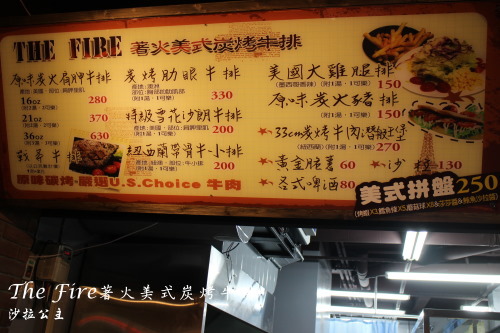 THE FIRE 著火美式炭烤牛排
原味炭火肩胛牛排
16oz 280
21oz 370
36oz 630
戰斧牛排
炭烤肋眼牛排
330
特級雪花沙朗牛排
200
紐西蘭帶骨牛小排
200
美國大雞腿排 150
原味炭火豬排 150
33cm炭烤牛肉潛艇堡 270
黃金脆薯 60
沙拉 130
各式啤酒 80
原味碳烤·嚴選U.S.Choice 牛肉
美式拼盤250
The Fire著火美式炭烤牛
沙拉公主